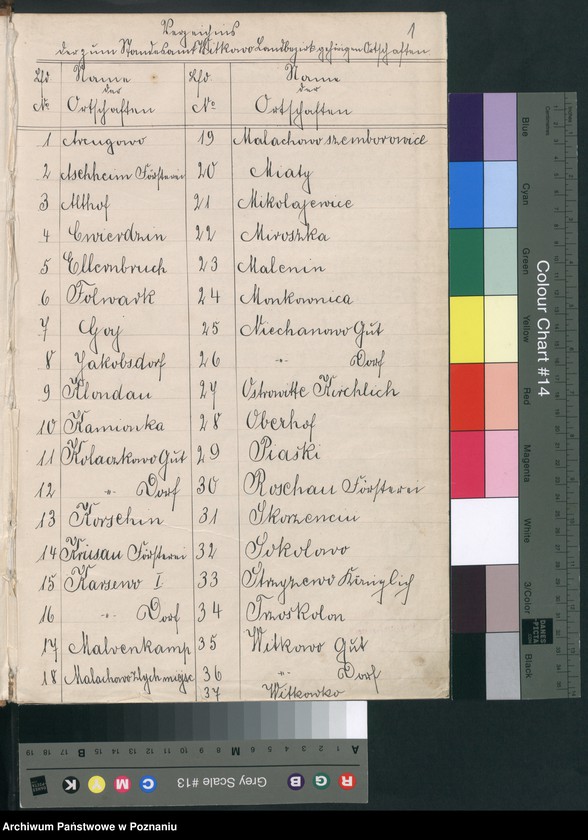 1
Verzeichnis
der zum Standesamt Witkowo Landbezirk gehörigen Ortschaften
Lfd Name Lfd Name
der der
No Ortschaften No Ortschaften
1 Arugowo 19 Malachowo szemborowice
2 Aschheim Försterei 20 Miaty
3 Althof 21 Mikolajewice
4 Cwierdzin 22 Miroszka
5 Ellernbruch 23 Malenin
6 Folwark 24 Monkownica
7 Goj 25 Niechanowo Gut
8 Jakobsdorf 26 -"- Dorf
9 Klondau 27 Ostrowitte Kirchlich
10 Kamionka 28 Oberhof
11 Kolaczkowo Gut 29 Piaski
12 -"- Dorf 30 Roschau Försterei
13 Korschin 31 Skorzencin
14 Krüsau Försterei 32 Sokolowo
15 Karsewo I 33 Stryzewo Königlich
16 -"- Dorf 34 Trzoskolon
17 Malvenkamp 35 Witkowo Gut
18 Malachowo 36 -"- Dorf
37 Witkowko
Colour Chart #14
Blue
Cyan
Green
Yellow
Red
Magenta
White
3/Color
Black
DANES
PICTA
Grey Scale #13
R G B C M Y K
A 1 2 3 4 5 6 M 8 9 10 11 12 13 14 15 B 17 18 19
Archiwum Państwowe w Poznaniu